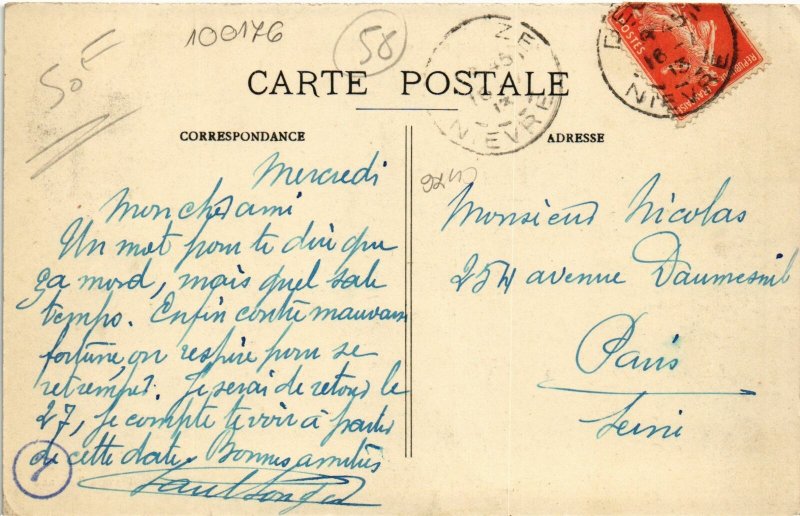 100176
58
50F
CARTE POSTALE
CORRESPONDANCE
ADRESSE
NIEVRE
NIEVRE
Mercredi
Mon cher ami
Un mot pour te dire que
ça mord, mais quel sale
temps. Enfin contre mauvaise
fortune, on respire pour se
retremper. Je serai de retour le
27, je compte te voir à partir
de cette date. Bonnes amitiés
Monsieur Nicolas
254 avenue Daumesnil
Paris
Seine